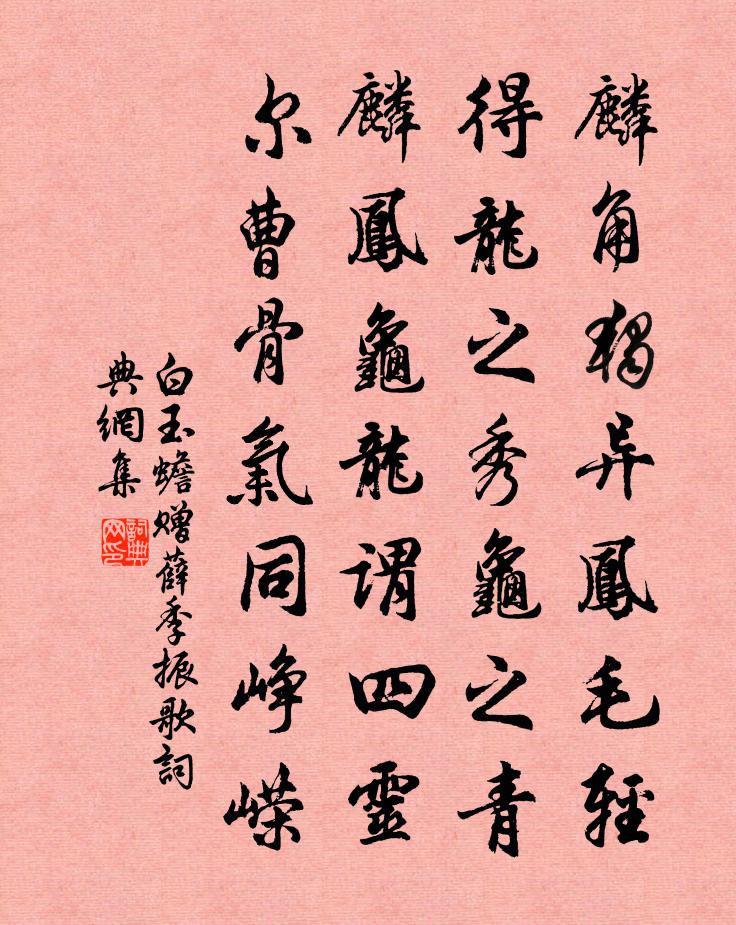 麟角獨异鳳毛輕
得龍之秀龜之青
麟鳳龜龍謂四靈
尔曹骨氣同崢嶸
白玉蟾贈薛季振歌詞
典網集
詞典
网印